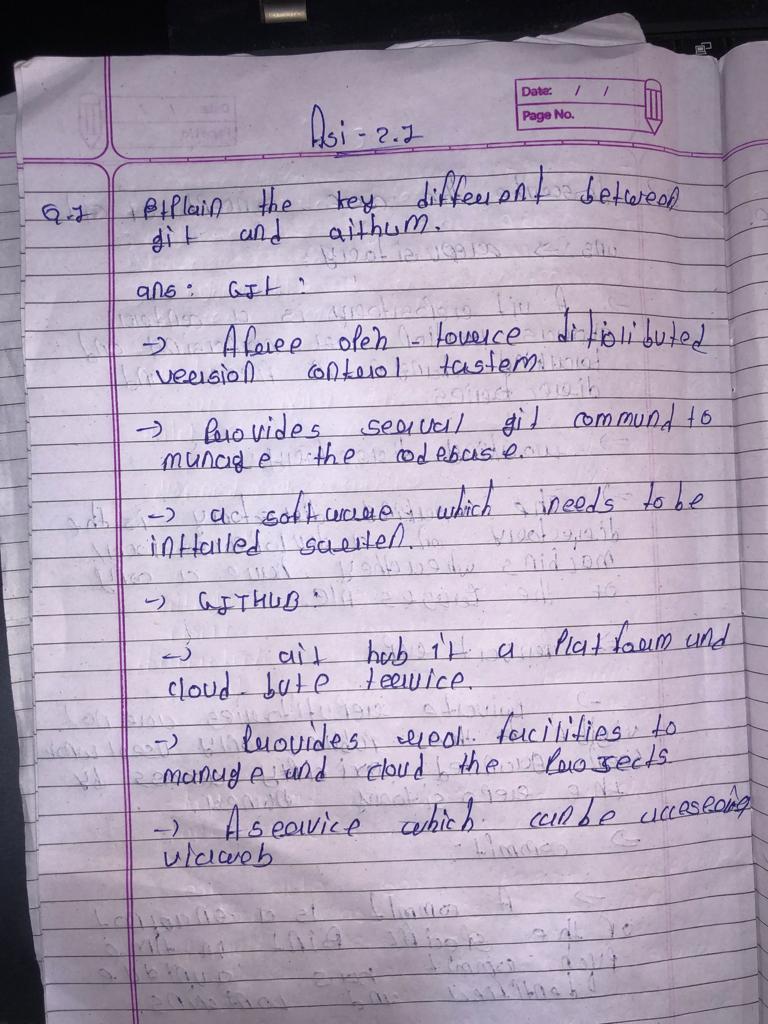 Date: / /
Page No.
Asi - 2.1
Q.1 explain the key different between
git and github.
ans: GIt :
→ A free open - source distributed
version control system.
→ Provides several git command to
manage the codebase.
→ a software which needs to be
intalled
→ GITHUB:
→ git hub it a Platform and
cloud - base service.
→ Provides facilities to
manage and cloud the Projects
→ A service which can be
via web